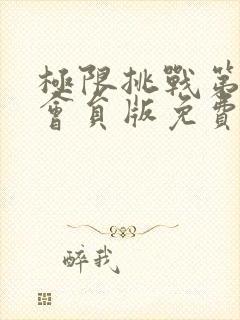 極限挑戰第
會員版免費
醉我